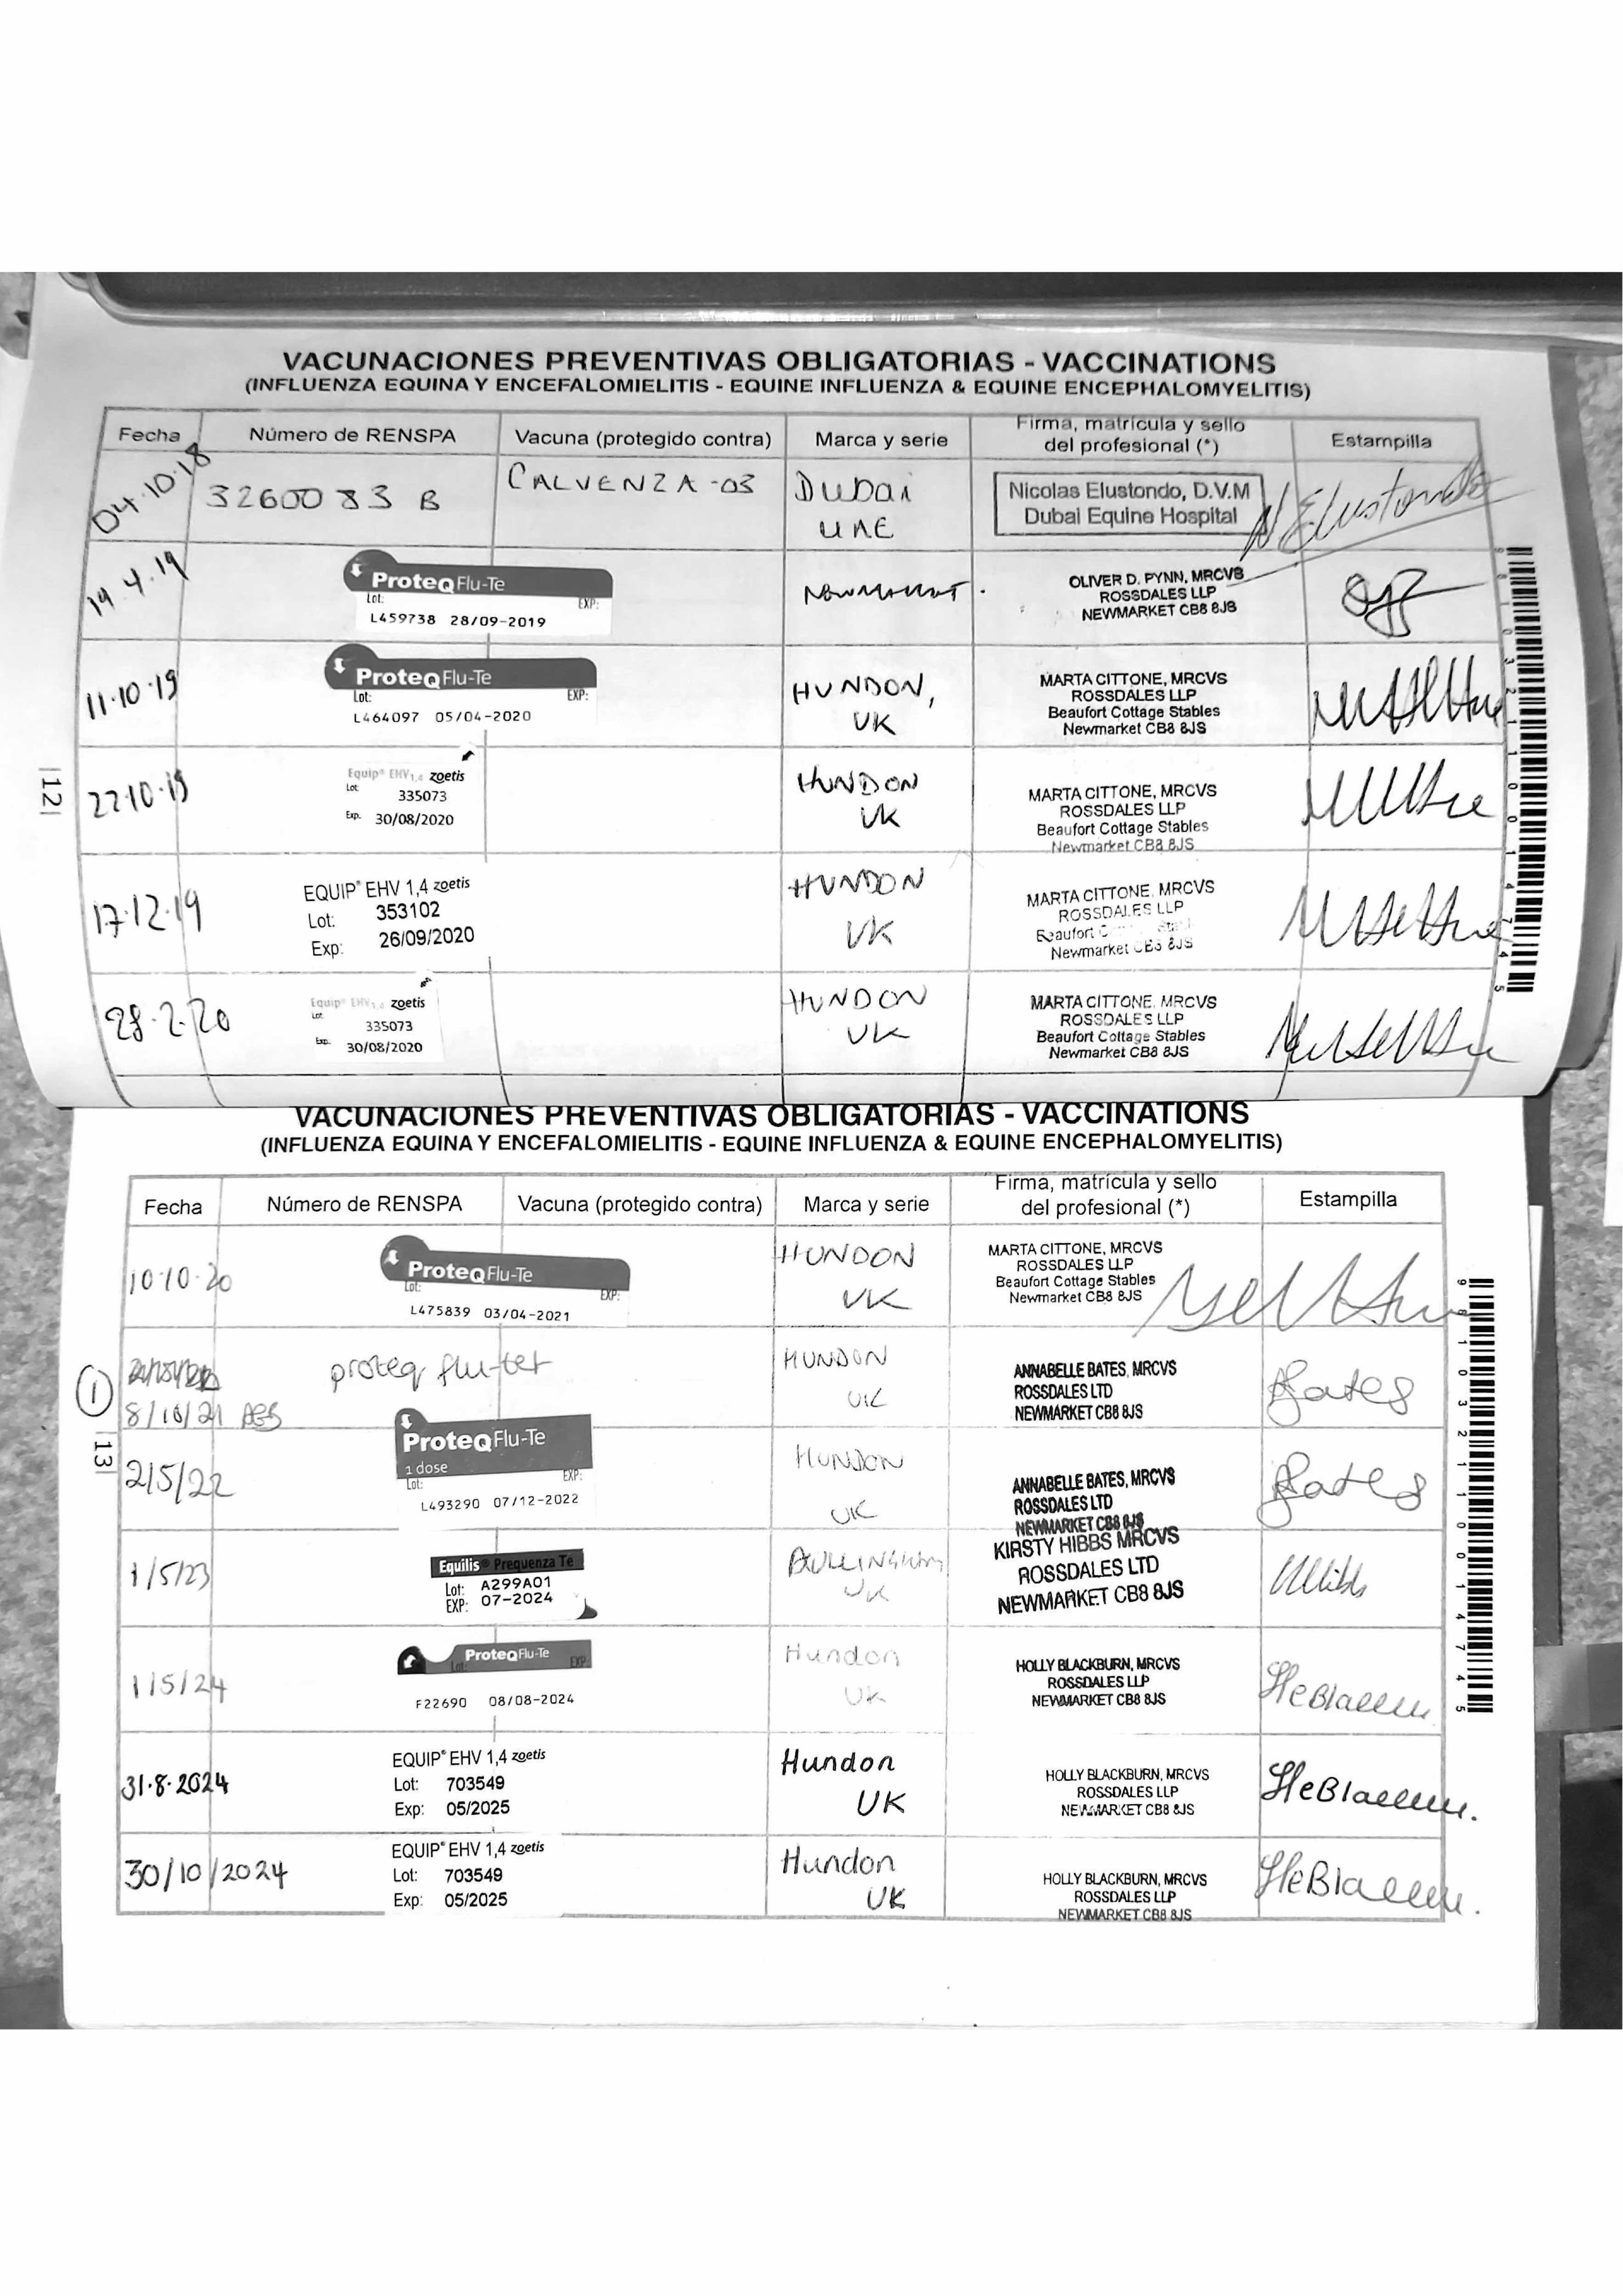 VACUNACIONES PREVENTIVAS OBLIGATORIAS - VACCINATIONS
(INFLUENZA EQUINA Y ENCEFALOMIELITIS - EQUINE INFLUENZA & EQUINE ENCEPHALOMYELITIS)
Fecha Número de RENSPA Vacuna (protegido contra) Marca y serie Firma, matrícula y sello del profesional (*) Estampilla
04.10.18 3260083 B CALVENZA-03 Dubai UAE
Nicolas Elustondo, D.V.M
Dubai Equine Hospital
N Elustondo
19.4.19
ProteqFlu-Te
Lot: EXP:
L459738 28/09-2019
NEWMARKET.
OLIVER D. PYNN, MRCVS
ROSSDALES LLP
NEWMARKET CB8 8JS
11.10.19
ProteqFlu-Te
Lot: EXP:
L464097 05/04-2020
HUNDON,
UK
MARTA CITTONE, MRCVS
ROSSDALES LLP
Beaufort Cottage Stables
Newmarket CB8 8JS
22.10.19
Equip® EHV1,4 zoetis
Lot: 335073
Exp. 30/08/2020
HUNDON
UK
MARTA CITTONE, MRCVS
ROSSDALES LLP
Beaufort Cottage Stables
Newmarket CB8 8JS
17.12.19
EQUIP® EHV 1,4 zoetis
Lot: 353102
Exp: 26/09/2020
HUNDON
UK
MARTA CITTONE, MRCVS
ROSSDALES LLP
Beaufort
Newmarket CB8 8JS
28.2.20
Equip® EHV1,4 zoetis
Lot: 335073
Exp. 30/08/2020
HUNDON
UK
MARTA CITTONE, MRCVS
ROSSDALES LLP
Beaufort Cottage Stables
Newmarket CB8 8JS
|12|
VACUNACIONES PREVENTIVAS OBLIGATORIAS - VACCINATIONS
(INFLUENZA EQUINA Y ENCEFALOMIELITIS - EQUINE INFLUENZA & EQUINE ENCEPHALOMYELITIS)
Fecha Número de RENSPA Vacuna (protegido contra) Marca y serie Firma, matrícula y sello del profesional (*) Estampilla
10.10.20
ProteqFlu-Te
Lot: EXP:
L475839 03/04-2021
HUNDON
UK
MARTA CITTONE, MRCVS
ROSSDALES LLP
Beaufort Cottage Stables
Newmarket CB8 8JS
1
8/10/21 AEB
proteq flu-tet
HUNDON
UK
ANNABELLE BATES, MRCVS
ROSSDALES LTD
NEWMARKET CB8 8JS
Bates
2/5/22
ProteqFlu-Te
1 dose
Lot: EXP:
L493290 07/12-2022
HUNDON
UK
ANNABELLE BATES, MRCVS
ROSSDALES LTD
NEWMARKET CB8 8JS
Bates
1/5/23
Equilis® Prequenza Te
Lot: A299A01
EXP: 07-2024
UK
KIRSTY HIBBS MRCVS
ROSSDALES LTD
NEWMARKET CB8 8JS
1/5/24
ProteqFlu-Te
Lot: EXP:
F22690 08/08-2024
Hundon
UK
HOLLY BLACKBURN, MRCVS
ROSSDALES LLP
NEWMARKET CB8 8JS
31.8.2024
EQUIP® EHV 1,4 zoetis
Lot: 703549
Exp: 05/2025
Hundon
UK
HOLLY BLACKBURN, MRCVS
ROSSDALES LLP
NEWMARKET CB8 8JS
30/10/2024
EQUIP® EHV 1,4 zoetis
Lot: 703549
Exp: 05/2025
Hundon
UK
HOLLY BLACKBURN, MRCVS
ROSSDALES LLP
NEWMARKET CB8 8JS
|13|